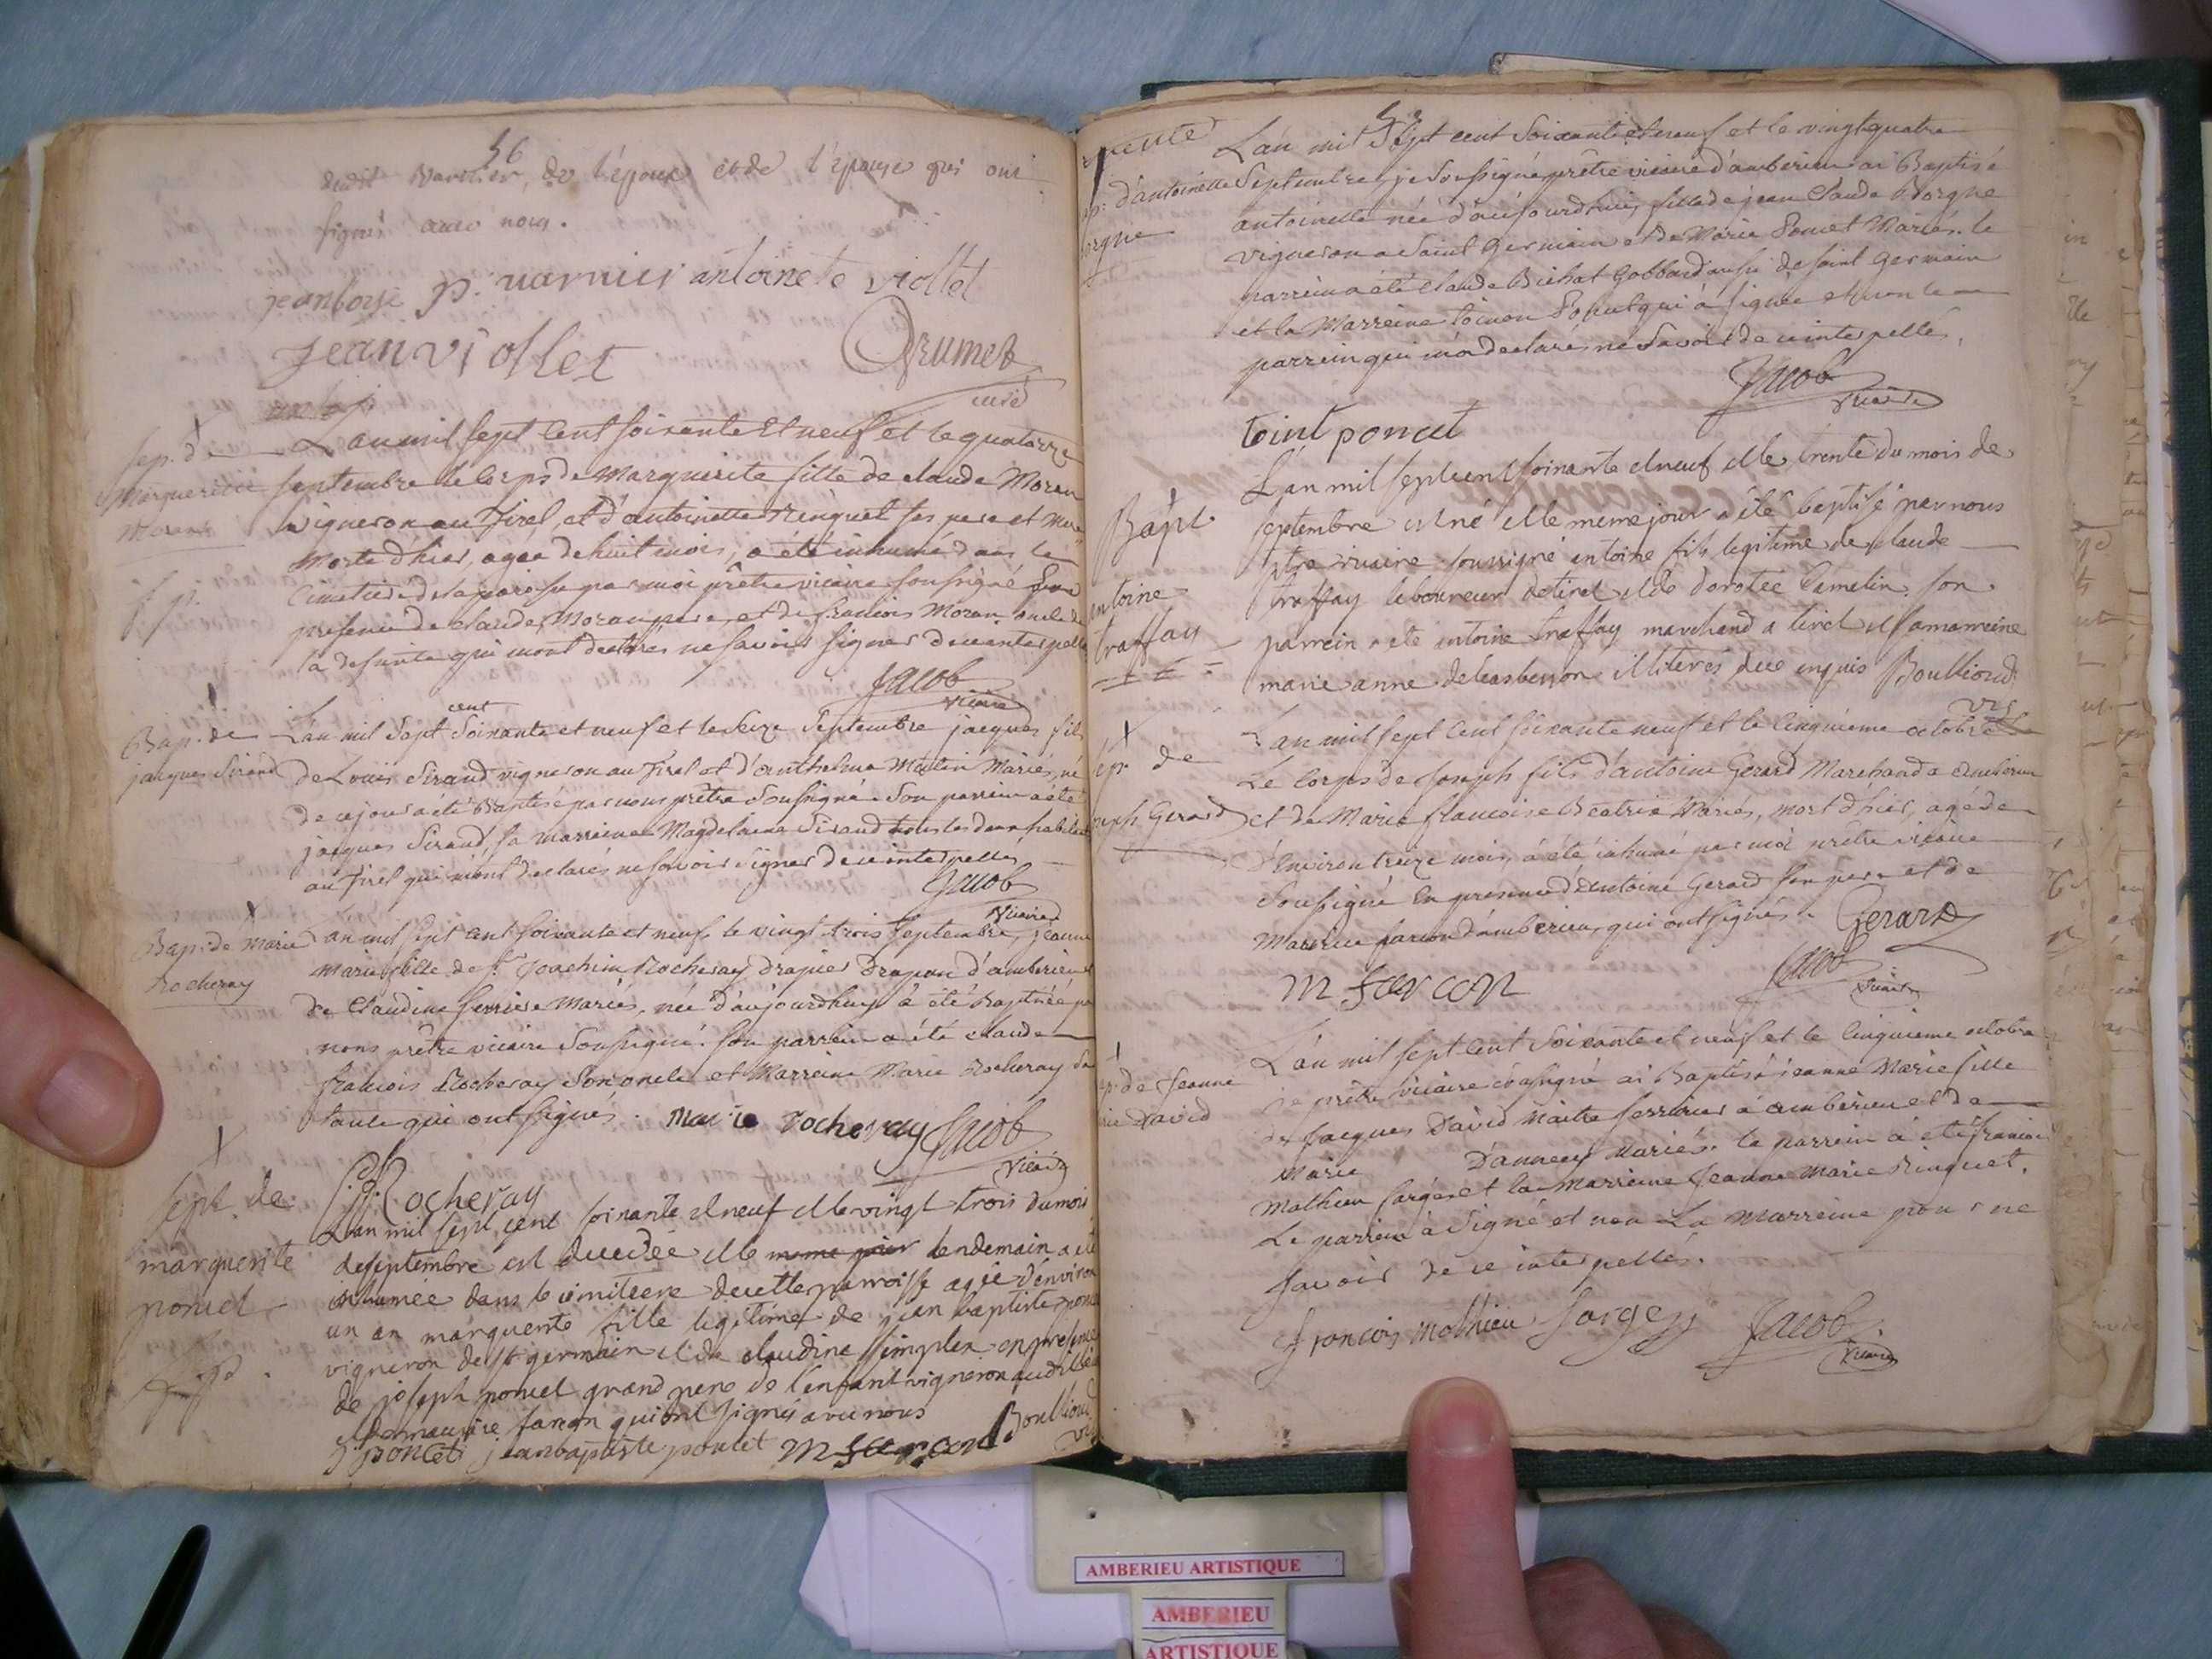 56
dudit Varnier, de l'epoux et de l'epouse qui ont
signé avec nous.
p. varnier antoinete viollet
jean viollet
Brumet
curé
Sep. de
Marguerite
Moran
L'an mil sept cent soixante et neuf et le quatorze
septembre le corps de Marguerite fille de claude Moran
vigneron au Tiret, et d'antoinette Ringuet ses pere et mere
Morte d'hier, agée de huit mois, a été inhumé dans le
Cimetiere de la paroisse par moi prêtre vicaire soussigné En
presence de claude Moran pere, et de francois Moran oncle de
la defunte qui m'ont declarés ne savoir signer de ce interpellé
Jacob
vicaire
Bap. de
jacques Sirand
L'an mil sept cent soixante et neuf et le seize septembre jacques fils
de Louis Sirand vigneron au Tiret et d'anthelme Martin Mariés, né
de ce jour a été Baptisé par nous prêtre soussigné. Son parrein a été
jacques Sirand, sa marreine Magdelaine Sirand tous les deux habitants
au Tiret qui m'ont declarés ne savoir signer de ce interpellés
Jacob
vicaire
Bap. de Marie
Rocheray
L'an mil sept cent soixante et neuf, le vingt trois septembre, jeanne
Marie fille de Sr. Joachim Rocheray drapier drapan d'amberieu et
de Claudine ferriere Mariés, née d'aujourdhuy à été Baptisée par
nous prêtre vicaire soussigné. son parrein a été claude
francois Rocheray son oncle et Marreine Marie Rocheray sa
tante qui ont signés. Marie rocheray Jacob
vicaire
Rocheray
Sept. de
marguerite
poncet
L'an mil sept cent soixante et neuf et le vingt trois du mois
de septembre est decedée et le meme jour lendemain a été
inhumée dans le cimiteere de cette parroisse agée d'environ
un an marguerite fille legitime de jean baptiste poncet
vigneron de st germain et de claudine simplex en presence
de joseph poncet grand pere de l'enfant vigneron audit lieu
et de maurice farcon qui ont signés avec nous
j poncet jean bapaste poncet m farcon Boullioud
vic
ap. d'antoinette
orgne
L'an mil sept cent soixante et neuf et le vingt quatre
Septembre, je soussigné prêtre vicaire d'amberieu ai Baptisé
antoinette née d'aujourdhuy, fille de jean Claude Borgne
vigneron a Saint Germain et de Marie Poncet Mariés. le
parrein a été claude Bichat Gobbard aussi de saint Germain
et la Marreine toinon Poncet qui à signée et non le
parrein qui m'a declarés ne savoir de ce interpellé.
Jacob
vicaire
toint poncet
Bapt.
antoine
traffay
L'an mil sept cent soixante et neuf et le trente du mois de
septembre est né et le meme jour a été baptisé par nous
ptre vicaire soussigné antoine fils legitime de claude
traffay laboureur de tiret et de dorotée Camelin. son
parrein a eté antoine traffay marchand a tiret et sa marreine
marie anne illiterés de ce enquis Boullioud
vic
Sep. de
oseph Gerard
L'an mil sept cent soixante neuf et le cinquieme octobre
Le corps de Joseph fils d'antoine Gerard Marchand a amberieu
et de Marie francoise Beatrix Mariés, mort d'hier, agé de
d'environ treize mois, à été inhumé par moi prêtre vicaire
soussigné En presence d'antoine Gerard son pere et de
Maurice farcon d'amberieu, qui ont signés. Gerard
m farcon Jacob
vicaire
ap. de Jeanne
rie david
L'an mil sept cent soixante et neuf et le cinquieme octobre
je prêtre vicaire soussigné ai Baptisé jeanne Marie fille
de jacques David Maitre serrurier à amberieu et de
Marie D'annecy Mariés. le parrein à été francois
Mathieu Sarget et la Marreine Jeanne Marie Ringuet.
Le parrein à signé et non La marreine pour ne
savoir de ce interpellés.
francois mathieu Sarget Jacob
vicaire
AMBERIEU ARTISTIQUE
AMBERIEU
ARTISTIQUE